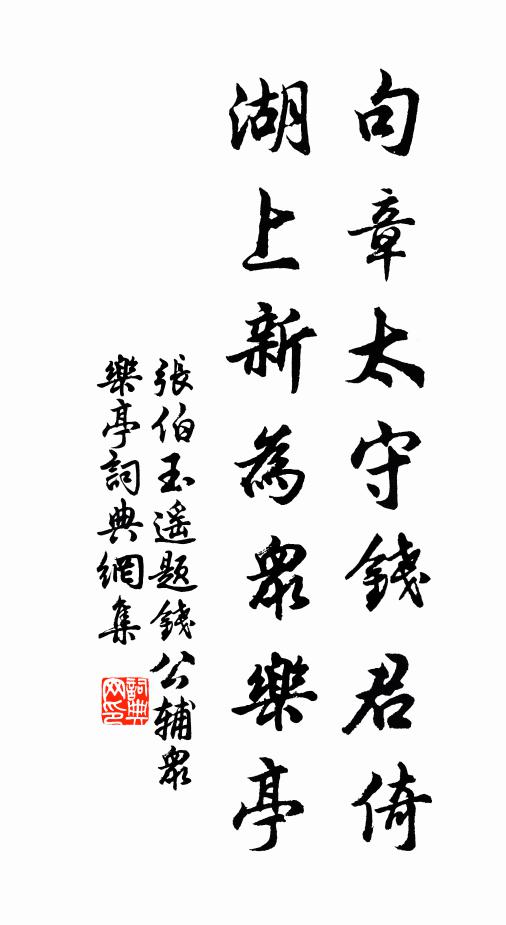 句章太守錢君倚
湖上新為眾樂亭
張伯玉遥题錢公辅眾
樂亭詞典網集
詞典网印